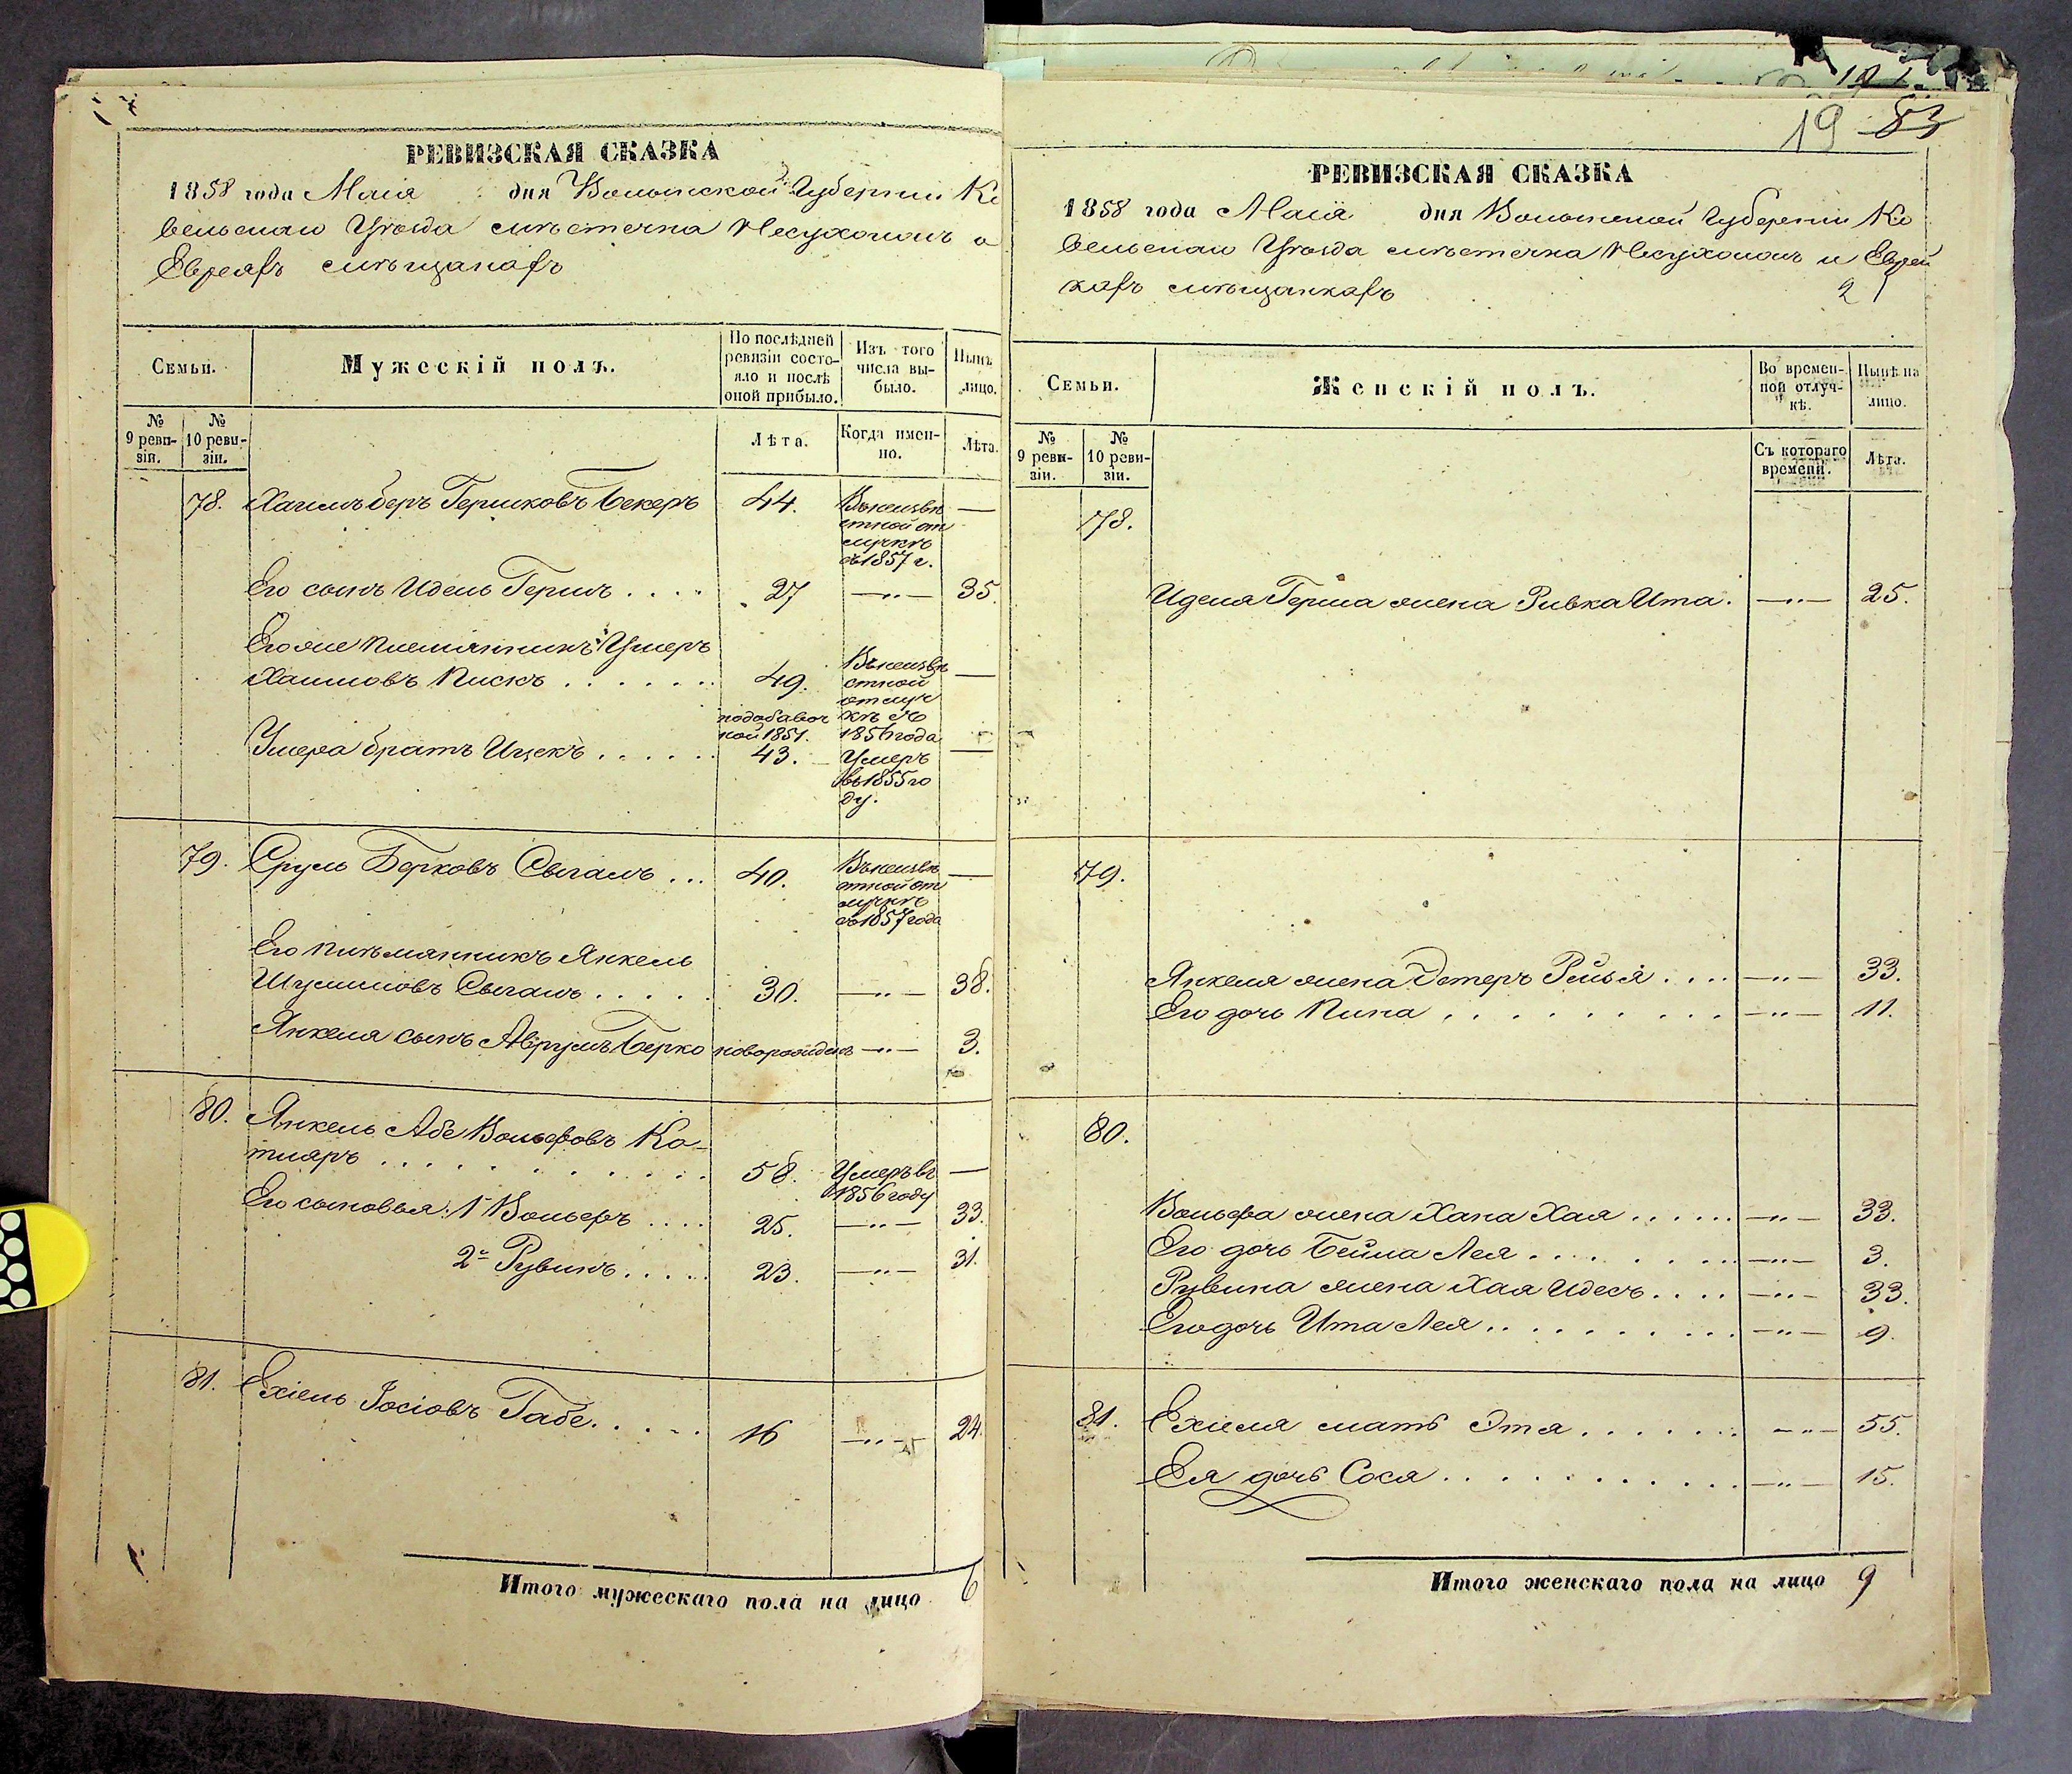 РЕВИЗСКАЯ СКАЗКА
1858 года Маія дня Волынской Губерніи Ко
вельскаго Уѣзда мѣстечка Несухоижъ о
Евреяхъ мѣщанахъ
Семьи.
Мужескій полъ.
По послѣдней ревизіи состояло и послѣ оной прибыло.
Изъ того числа выбыло.
Нынѣ лицо.
№ 9 ревизіи.
№ 10 ревизіи.
Лѣта.
Когда именно.
Лѣта.
78. Хаимъ беръ Гершковъ Бекеръ 44. Въ неизвѣ —
стной от
лучкѣ
съ 1857 г.
Его сынъ Идель Гершъ . . . . 27 —〃— 35.
Его же племянникъ Умеръ
Хаимовъ Пискъ . . . . . . 49. Въ неизвѣ —
стной
отлуч
кѣ съ
1856 года
по добавоч
ной 1851.
Умера братъ Ицекъ . . . . . . 43. Умеръ —
въ 1855 го
ду.
79. Сруль Берковъ Сыгалъ . . . 40. Въ неизвѣ —
стной от
лучкѣ
съ 1857 года
Его племянникъ Янкель
Шулимовъ Сыгалъ . . . . . 30. —〃— 38.
Янкеля сынъ Аврумъ Берко новорожденъ —〃— 3.
80. Янкель Абе Вольфовъ Ко-
тляръ . . . . . . . . . . . 58. Умеръ въ —
1856 году
Его сыновья: 1й Вольфъ . . . . 25. —〃— 33.
2й Рувинъ . . . . . 23. —〃— 31.
81. Ехіель Іосіовъ Габе . . . . . 16 —〃— 24.
Итого мужескаго пола на лицо 6
19 83
РЕВИЗСКАЯ СКАЗКА
1858 года Маія дня Волынской Губерніи Ко
вельскаго Уѣзда мѣстечка Несухоижъ и Еврей
кахъ мѣщанкахъ
Семьи.
Женскій полъ.
Во временной отлучкѣ.
Нынѣ на лицо.
№ 9 ревизіи.
№ 10 ревизіи.
Съ котораго времени.
Лѣта.
78.
Иделя Герша жена Ривка Ита. —〃— 25.
79.
Янкеля жена Эстеръ Рейзя . . . . —〃— 33.
Его дочь Пина . . . . . . . . . . —〃— 11.
80.
Вольфа жена Хана Хая . . . . . . —〃— 33.
Его дочь Бейла Лея . . . . . . . . . —〃— 3.
Рувина жена Хая Идесъ . . . . —〃— 33.
Его дочь Ита Лея . . . . . . . . . . —〃— 9.
81. Ехиеля мать Этя . . . . . . . —〃— 55.
Ея дочь Сося . . . . . . . . . . . —〃— 15.
Итого женскаго пола на лицо 9